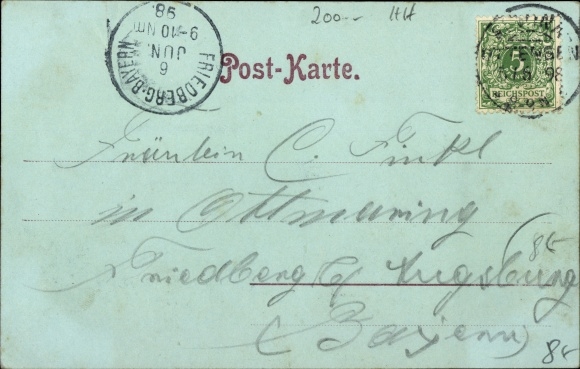 200.- HH
FRIEDBERG-BAYERN
6
JUN.
9-10 NM
98
Post-Karte.
5
REICHSPOST
98
Fräulein C. Finkl
in Ottmaring
Friedberg b/ Augsburg
(Bayern)
(8€
8€